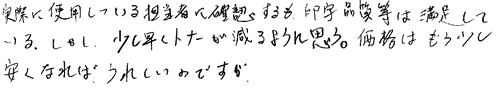 実際に使用している担当者に確認するも、印字品質等は満足して
いる。しかし、少し早くトナーが減るように思う。価格はもう少し
安くなれば、うれしいのですが。